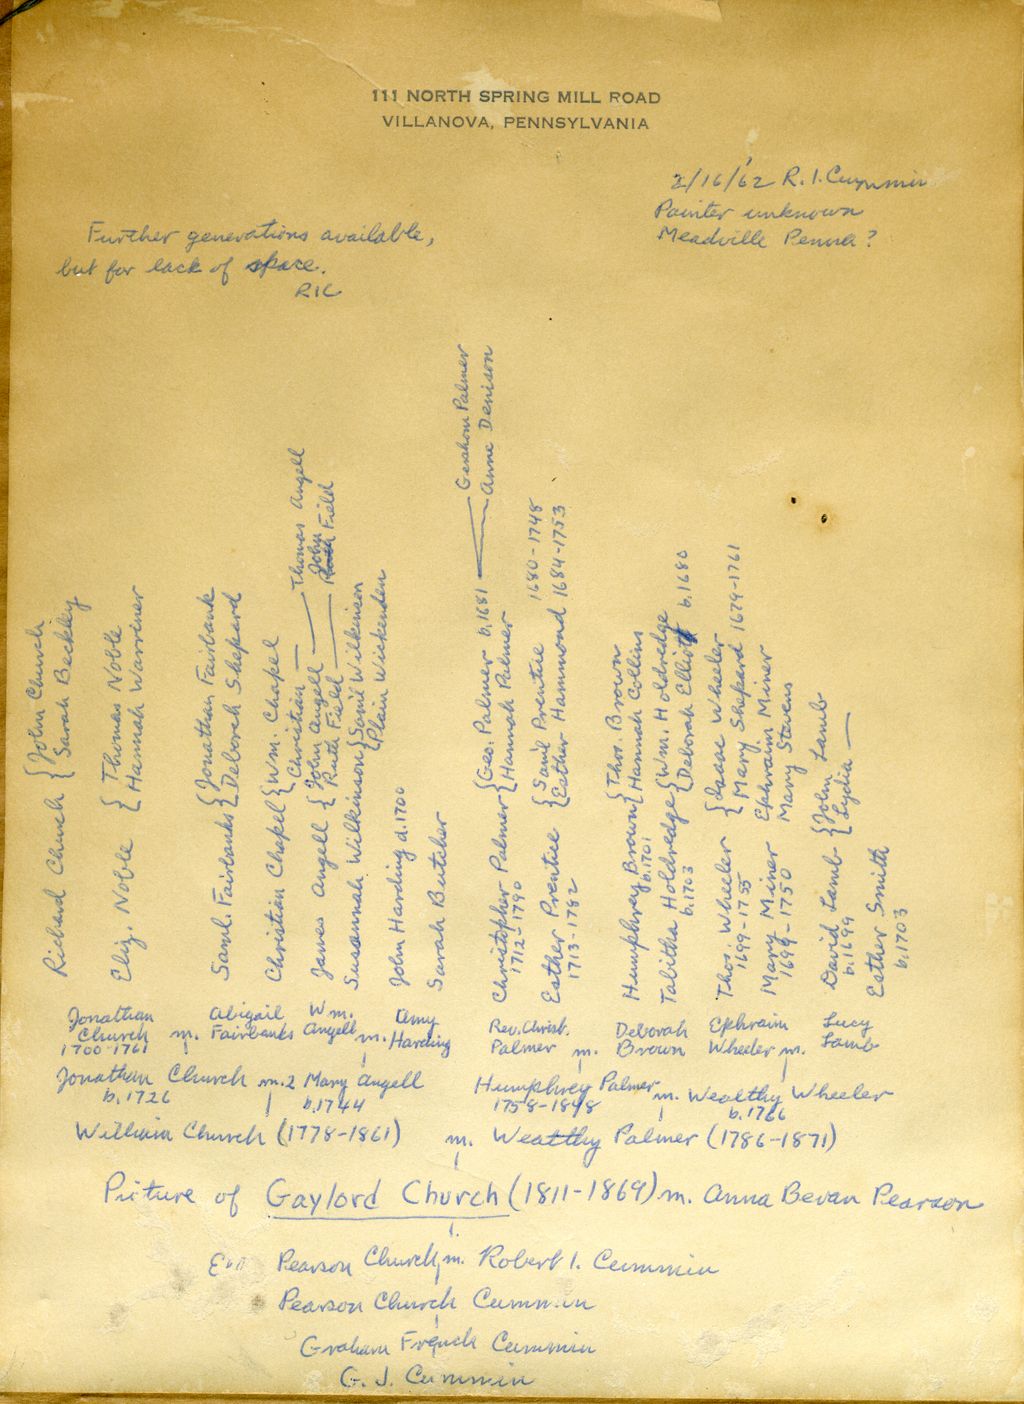 111 NORTH SPRING MILL ROAD
VILLANOVA, PENNSYLVANIA
2/16/62 R. I. Cummin
Painter unknown
Meadville Penna?
Further generations available,
but for lack of space.
RIC
Richard Church { John Church
Sarah Beckley
Eliz. Noble { Thomas Noble
Hannah Warriner
Saml. Fairbanks { Jonathan Fairbank
Deborah Shepard
Christian Chapel { Wm. Chapel
Christian —
James Angell { John Angell — Thomas Angell
Ruth Field — John Field
Susannah Wilkinson { Saml Wilkinson
Plain Wickenden
John Harding d. 1700
Sarah Butcher
Christopher Palmer { Geo. Palmer b. 1681 — Gershom Palmer
Anne Denison
1712-1790 Hannah Palmer
Esther Prentice { Saml Prentice 1680-1748
1713-1782 Esther Hammond 1684-1753
Humphrey Brown { Thos. Brown
b. 1701 Hannah Collins
Tabitha Holdredge { Wm. Holdredge
b. 1703 Deborah Elliott b. 1680
Thos. Wheeler { Isaac Wheeler
1699-1755 Mary Shepard 1679-1761
Mary Miner Ephraim Miner
1699-1750 Mary Stevens
David Lamb { John Lamb
b. 1699 Lydia —
Esther Smith
b. 1703
Jonathan Church m. Abigail Fairbanks
1700-1761
Wm. Angell m. Amy Harding
Rev. Christ. Palmer m. Deborah Brown
Ephraim Wheeler m. Lucy Lamb
Jonathan Church m. 2 Mary Angell
b. 1726 b. 1744
Humphrey Palmer m. Wealthy Wheeler
1758-1848 b. 1766
William Church (1778-1861) m. Wealthy Palmer (1786-1871)
Picture of Gaylord Church (1811-1869) m. Anna Bevan Pearson
Pearson Church, m. Robert I. Cummin
Pearson Church Cummin
Graham French Cummin
G. J. Cummin